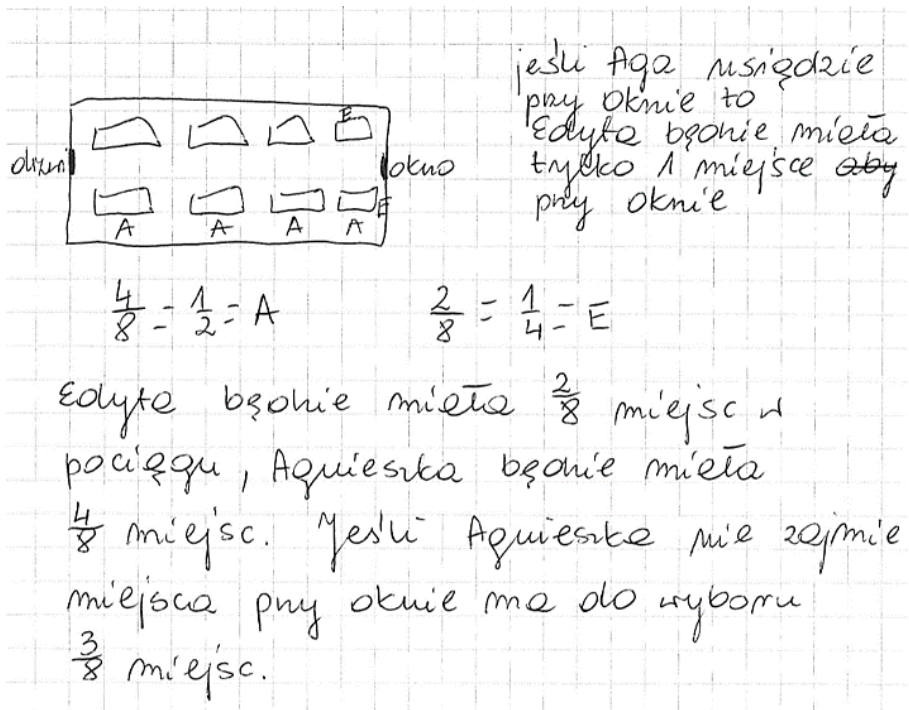 jeśli Aga usiądzie
przy oknie to
Edyta będzie miała
tylko 1 miejsce aby
przy oknie
drzwi E okno
E
A A A A
4/8 = 1/2 = A 2/8 = 1/4 = E
Edyta będzie miała 2/8 miejsc w
pociągu, Agnieszka będzie miała
4/8 miejsc. Jeśli Agnieszka nie zajmie
miejsca przy oknie ma do wyboru
3/8 miejsc.